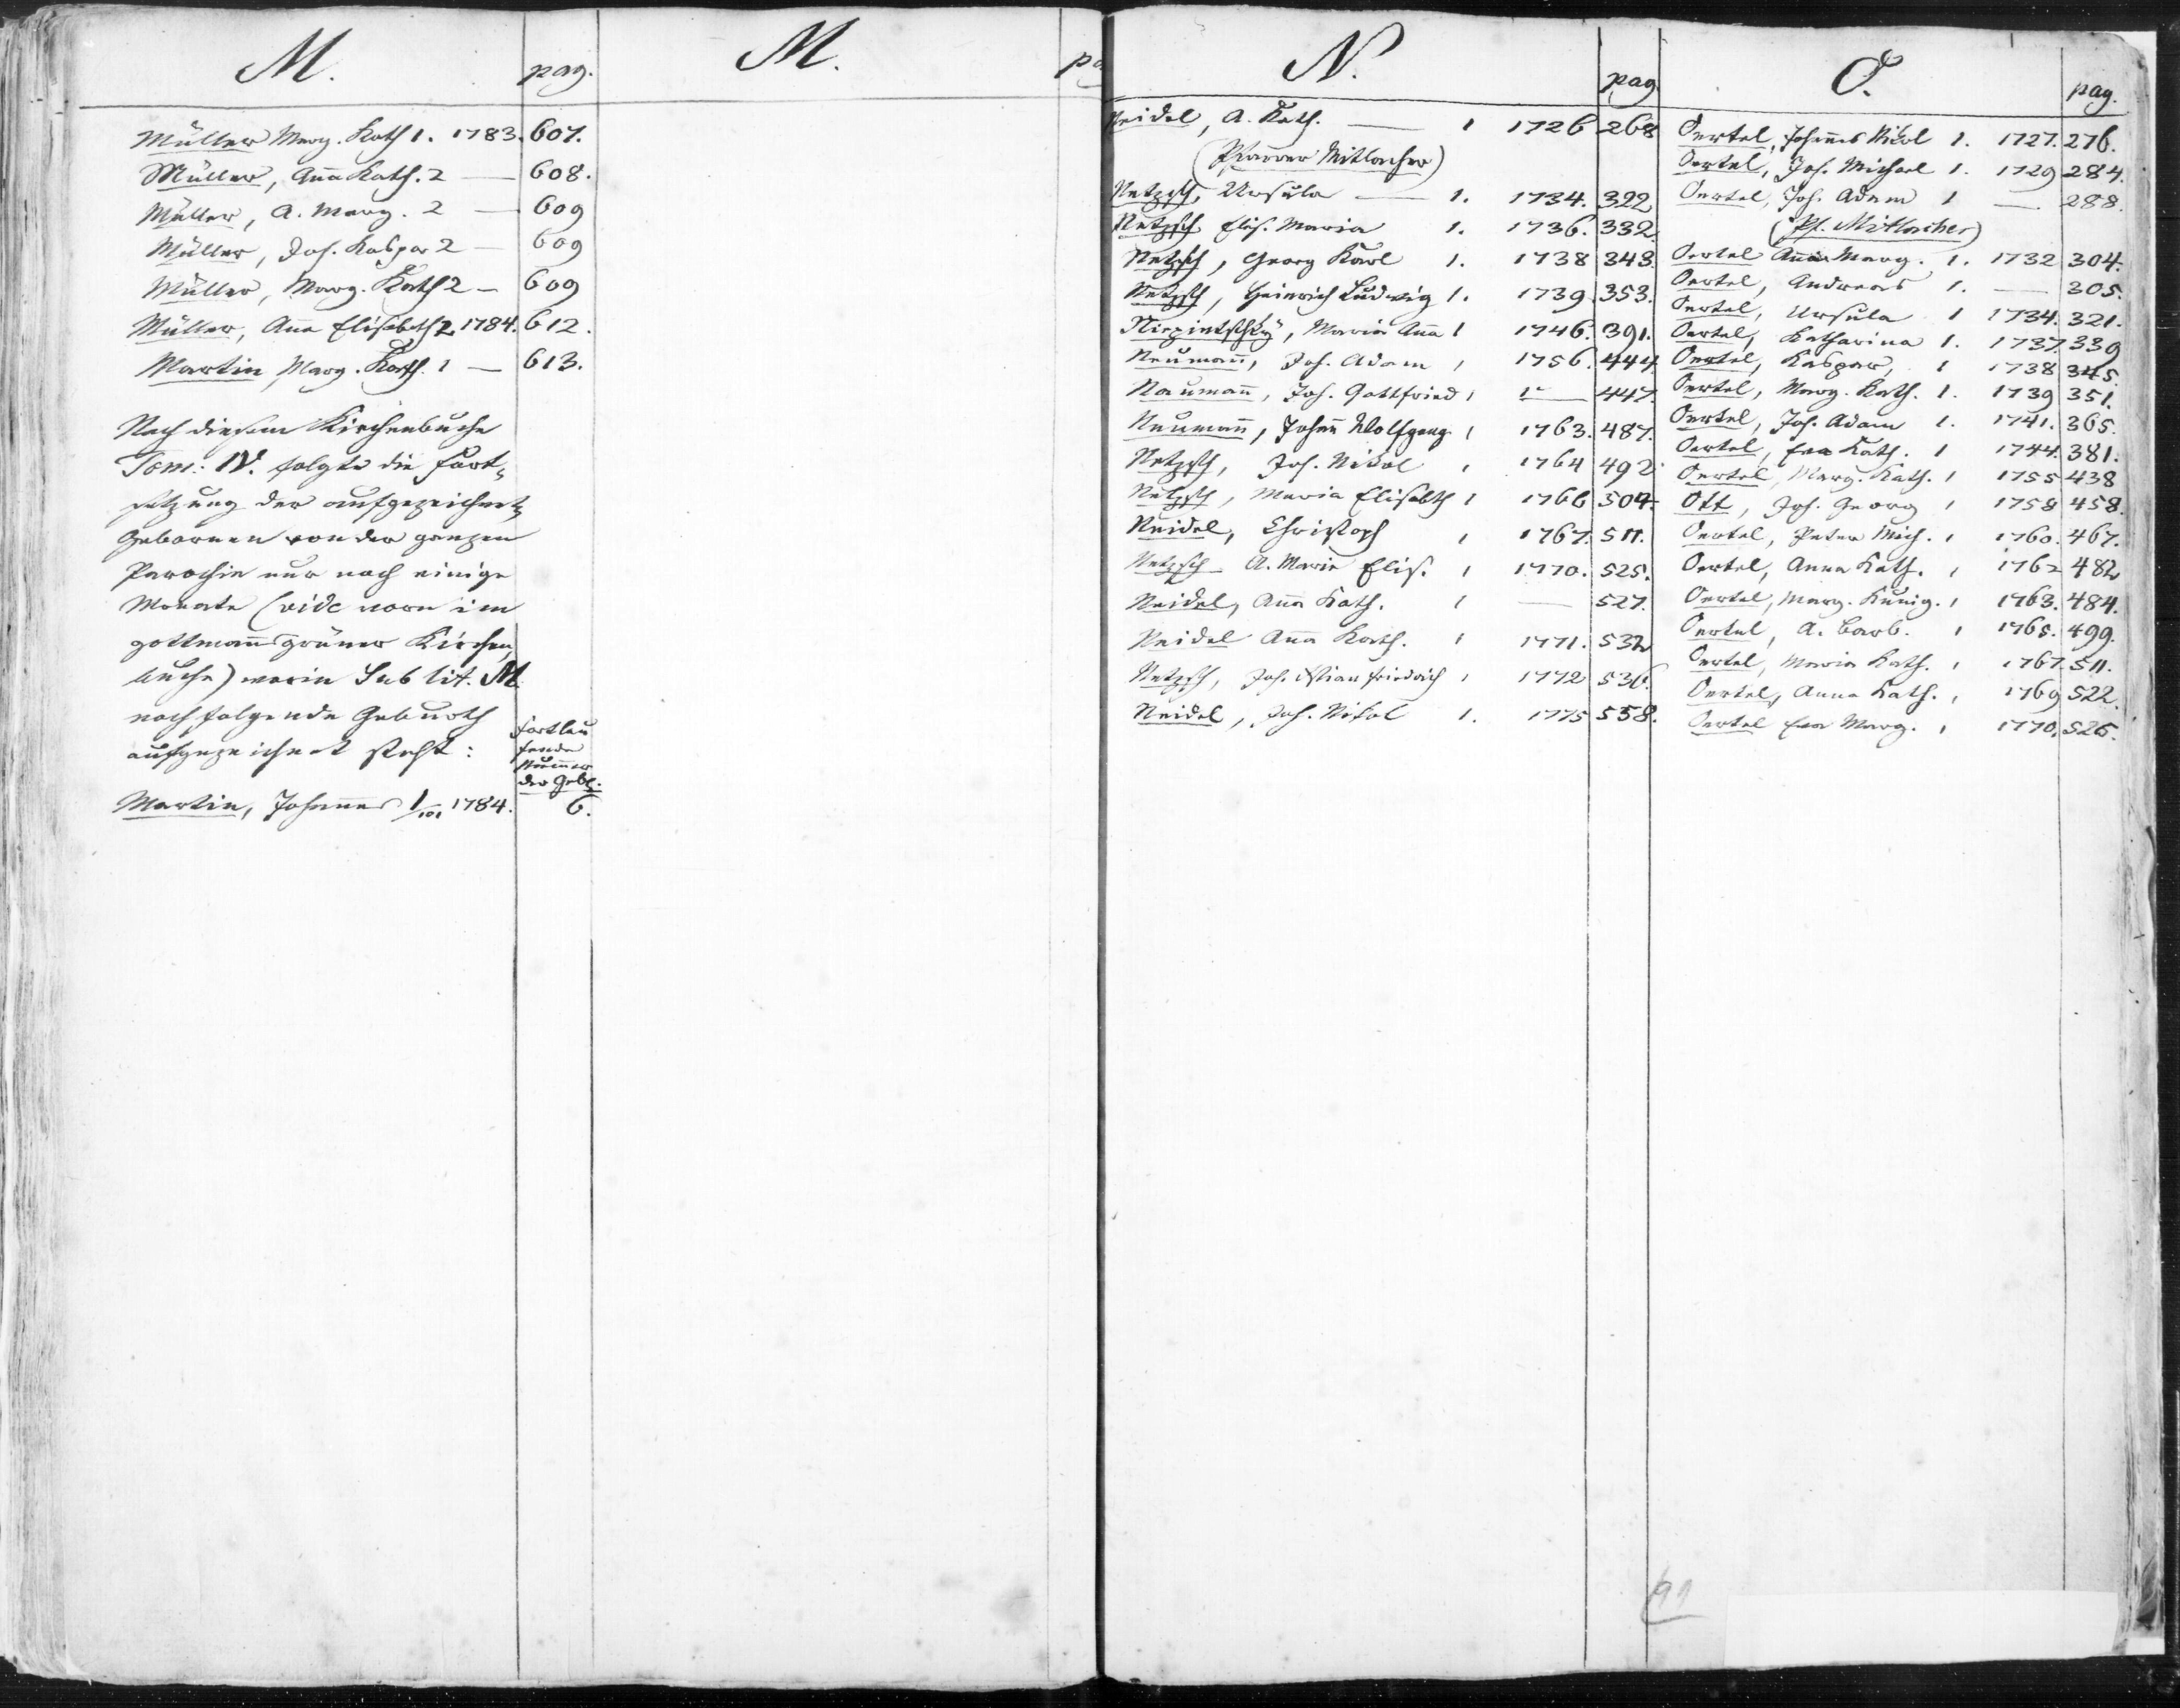 M.
pag.
Müller Marg. Kath 1. 1783. 607.
Müller, Aña Kath. 2 — 608.
Müller, A. Marg. 2 — 609
Müller, Joh. Kaspar 2 — 609
Müller, Marg. Kath 2 — 609
Müller, Aña Elisabeth 2 1784. 612.
Martin Marg. Kath. 1 — 613.
Nach diesem Kirchenbuche
Tom: IV. folgte die Fort-
setzung der aufgezeichnet
Gebornen von der ganzen
Parochie nur noch einige
Monate (vide vorn im
gottmañsgrüner Kirchen-
buche) worin Sub lit. M.
nachfolgende Geburth
aufgezeichnet steht:
fortlau
fende
Num̄er
der Geb.
Martin, Johannes 1/101 1784. 6.
M.
pa
N.
pag
Neidel, A. Kath. — 1 1726 268
(Pfarrer Mitlacher)
Netzsch, Ursula — 1. 1734. 322
Netzsch Elis. Maria 1. 1736. 332.
Netzsch, Georg Karl 1. 1738 343.
Netzsch, Heinrich Ludwig 1. 1739. 353.
Maria Aña 1 1746. 391.
Neumañ, Joh. Adam 1 1756. 444
Naumañ, Joh. Gottfried 1 — 447.
Neumañ, Johañ Wolfgang 1 1763. 487.
Netzsch, Joh. Nikol 1 1764 492
Netzsch, Maria Elisabth 1 1766 504.
Neidel, Christoph 1 1767. 511.
Netzsch A. Maria Elis. 1 1770. 525.
Neidel, Aña Kath. 1 — 527.
Neidel Aña Kath. 1 1771. 532
Netzsch, Joh. Xstian Friedrich 1 1772 536.
Neidel, Joh. Nikol 1. 1775 558.
O.
pag.
Oertel, Johañes Nikol 1. 1727. 276.
Oertel, Joh. Michael 1. 1729 284.
Oertel, Joh. Adam 1 — 288.
(Pf. Mitlacher)
Oertel Aña Marg. 1. 1732 304.
Oertel, Andreas 1. — 305.
Oertel, Ursula 1 1734. 321.
Oertel, Katharina 1. 1737. 339
Oertel, Kaspar, 1 1738 345.
Oertel, Marg. Kath. 1. 1739 351.
Oertel, Joh. Adam 1. 1741. 365.
Oertel, Eva Kath. 1 1744. 381.
Oertel, Marg. Kath. 1 1755 438
Ott, Joh. Georg 1 1758 458.
Oertel, Peter Mich. 1 1760. 467.
Oertel, Anna Kath. 1 1762 482
Oertel, Marg. Kunig. 1 1763. 484.
Oertel, A. Barb. 1 1765. 499.
Oertel, Maria Kath. 1 1767. 511.
Oertel, Anna Kath. 1 1769 522.
Oertel Eva Marg. 1 1770. 526.
91